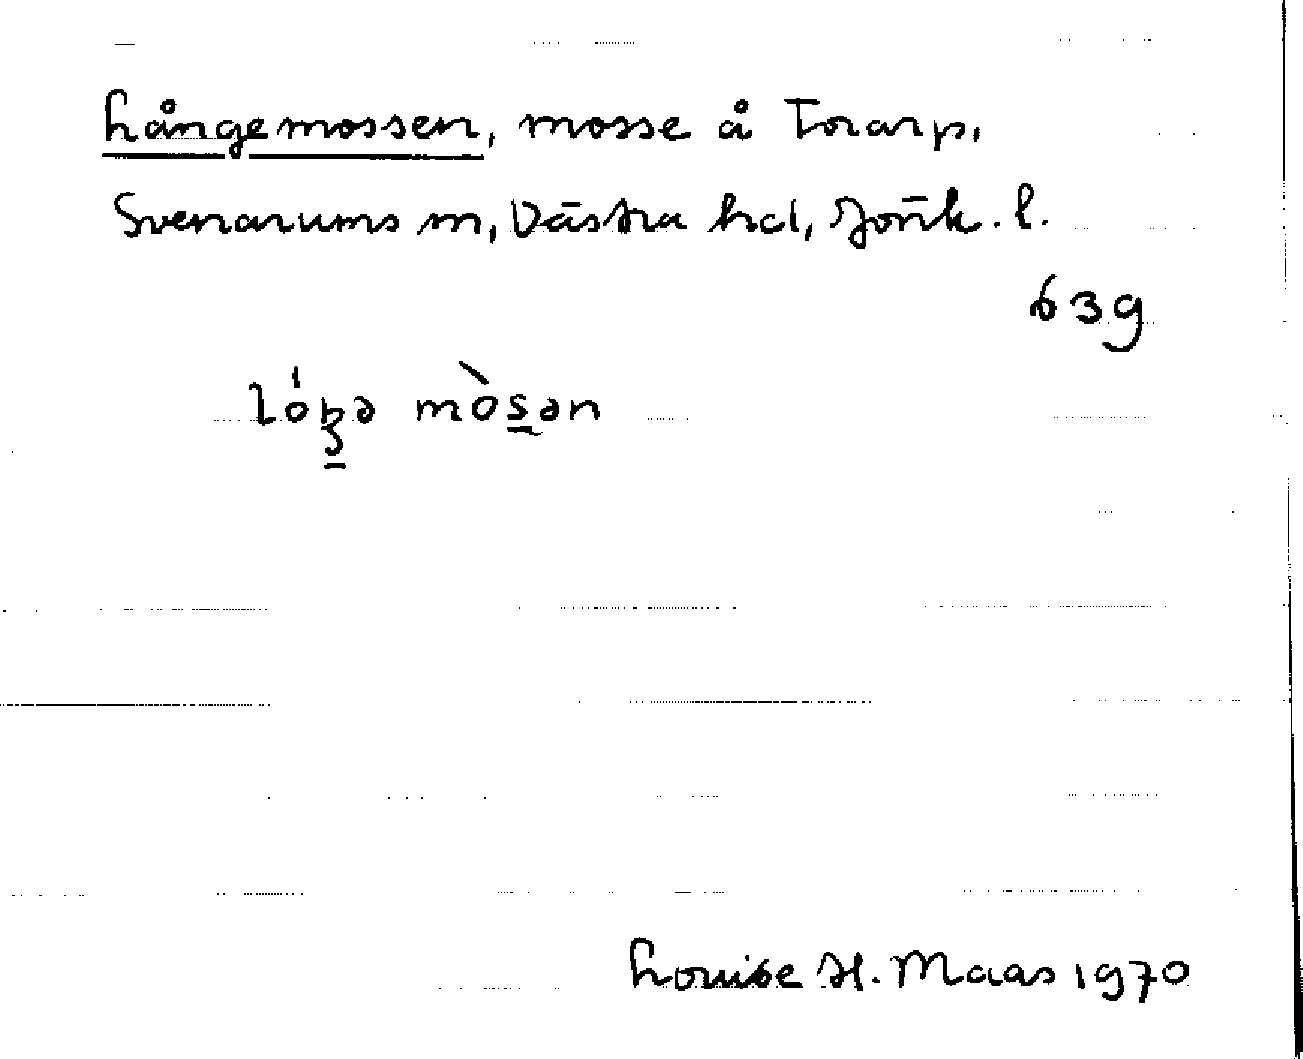 Långemossen, mosse å Torarp,
Svenarums sn, Västra hd, Jönk. l.
63g
Louise H. Maas 1970